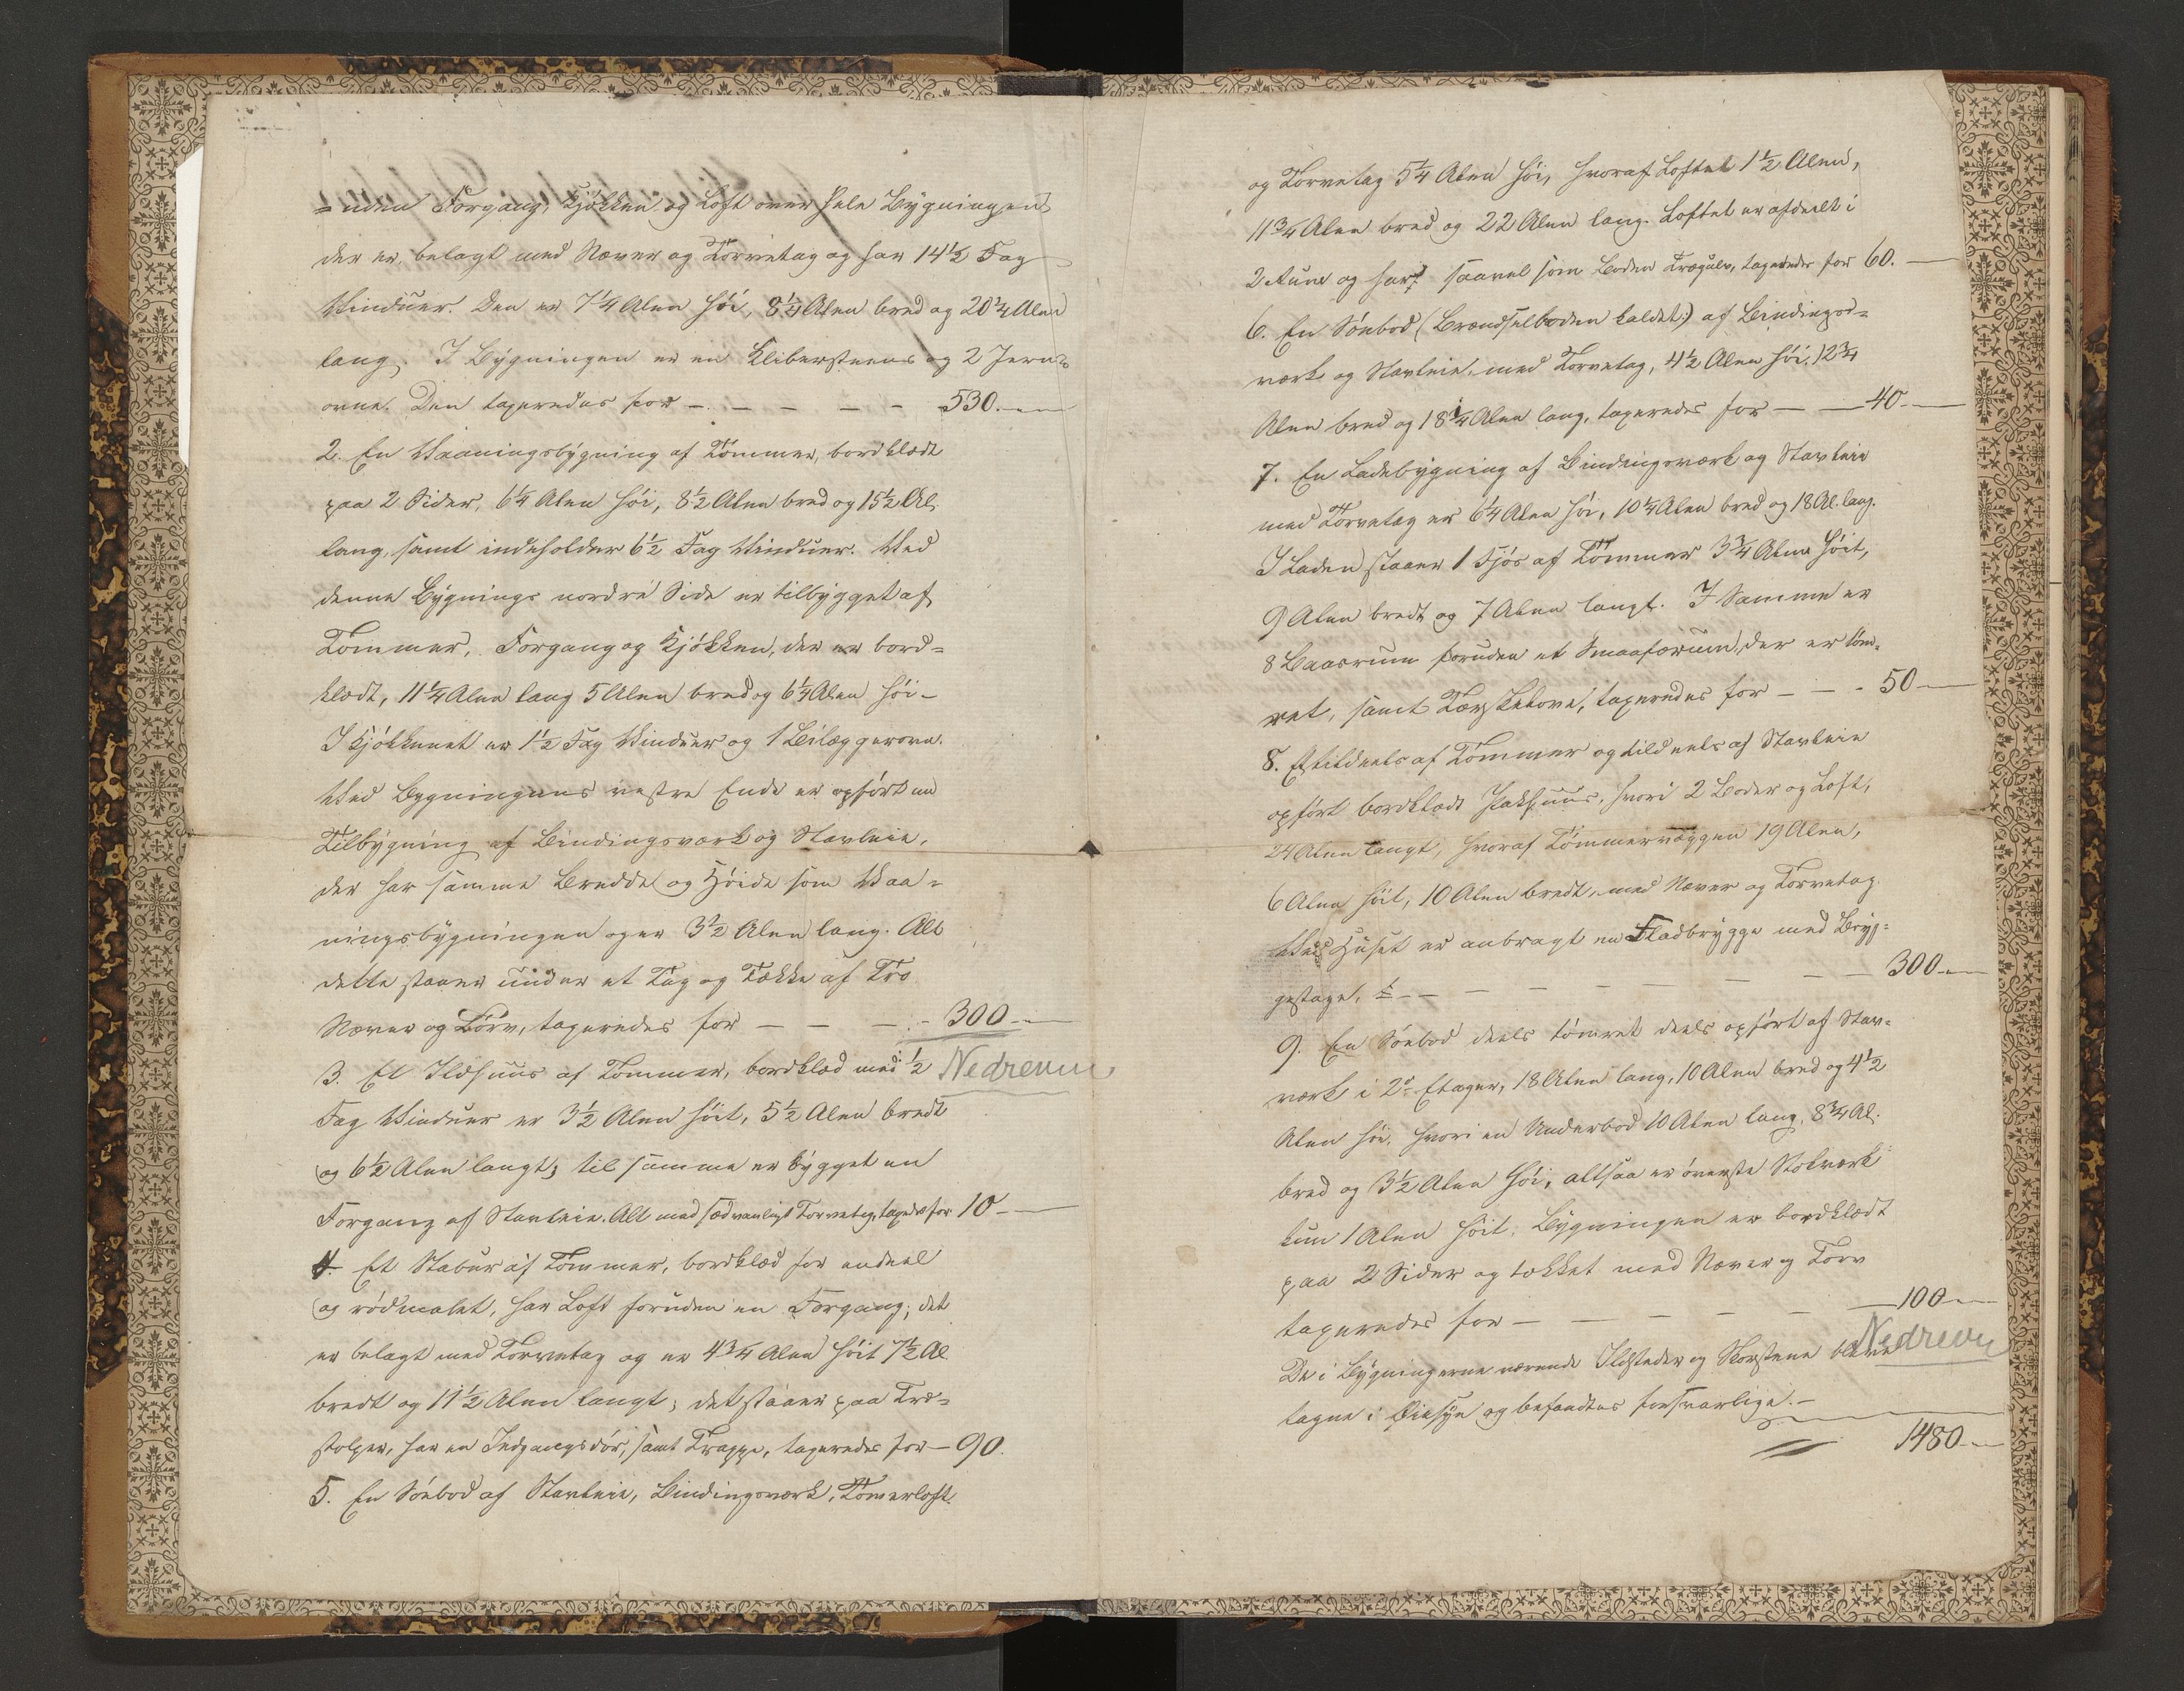 = uden Forgang, Kjøkken og Loft over hele Bygningen,
der er belagt med Næver og Torvetag og har 14½ Fag
Vinduer. Den er 7¼ Alen høi, 8¼ Alen bred og 20¼ Alen
lang. I Bygningen er en Klibersteens og 2 Jern-
ovne. Den taxeredes for - - - - - 530.
2. En Vaaningsbygning af Tømmer, bordklædt
paa 2 Sider, 6¼ Alen høi, 8½ Alen bred og 15½ Al.
lang, samt indeholder 6½ Fag Vinduer. Ved
denne Bygnings nordre Side er tilbygget af
Tømmer, Forgang og Kjøkken, der er bord=
klædt, 11¼ Alen lang 5 Alen bred og 6¼ Alen høi -
I Kjøkkenet er 1½ Fag Vinduer og 1 Bilæggerovn.
Ved Bygningens vestre Ende er opført en
Tilbygning af Bindingsværk og Stavleie,
der har samme Bredde og Høide som Vaa=
ningsbygningen og er 3½ Alen lang. Alt
dette staaer under et Tag og Tække af Tro
Næver og Törv, taxeredes for - - - - 300
3. Et Ildhuus af Tømmer, bordklæd med ½ Nedreven
Fag Vinduer er 3½ Alen høit, 5½ Alen bredt
og 6½ Alen langt; til samme er bygget en
Forgang af Stavleie. Alt med sædvanligt Torvetag, taxeredes for 10 -
4. Et Stabur af Tømmer, bordklæd for endeel
og rødmalet, har Loft foruden en Forgang; det
er belagt med Torvetag og er 4¾ Alen høit 7½ Al.
bredt og 11½ Alen langt; det staaer paa Træ=
stolper, har en Indgangsdør, samt Trappe, taxeredes for - 90.
5. En Søebod af Stavleie, Bindingsværk, Tømerloft
og Torvetag 5¼ Alen høi, hvoraf Loftet 1½ Alen,
11¾ Alen bred og 22 Alen lang. Loftet er afdeelt i
2 Rum og har saavel som Boden Trægulv, taxeredes for 60.
6. En Søebod (Brændselboden kaldet) af Bindings=
værk og Stavleie med Torvetag, 4½ Alen høi, 12¾
Alen bred og 18¼ Alen lang, taxeredes for - - 40
7. En Ladebygning af Bindingsværk og Stavleie
med Torvetag er 6¼ Alen høi, 10¼ Alen bred og 18 Al. lang.
I Laden staaer 1 Fjøs af Tømmer 3¾ Alen høit,
9 Alen bredt og 7 Alen langt. I Samme er
8 Baasrum foruden et Smaaførum, der er töm=
ret, samt Tærskelove, taxeredes for - - - 50
8. Et tildeels af Tømmer og tildeels af Stavleie
opført bordklædt Pakhuus, hvori 2 Boder og Loft,
24 Alen langt, hvoraf Tømmervæggen 19 Alen,
6 Alen høit, 10 Alen bredt, med Næver og Torvetag.
Ved Huset er anbragt en Fladbrygge med Bryg=
gestage, - - - - - - - 300
9. En Søebod deels tømret deels opført af Stav=
værk i 2de Etager, 18 Alen lang, 10 Alen bred og 4½
Alen høi, hvori en Underbod 10 Alen lang, 8¾ Al.
bred og 3½ Alen høi, altsaa er øverste Stokværk
kun 1 Alen høit. Bygningen er bordklædt
paa 2 Sider og tækket med Næver og Torv
taxeredes for - - - - - 100
Nedreven
De i Bygningerne værende Ildsteder og Skorstene bleve
tagne i Øiesyn og befandtes forsvarlige. -
1480